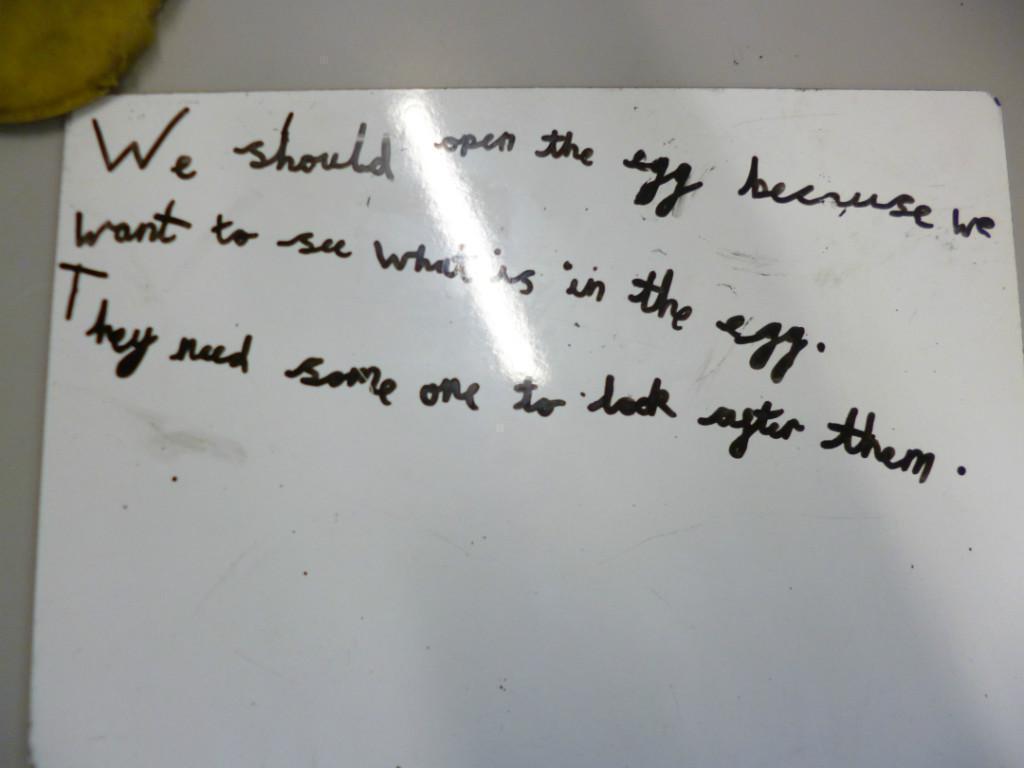 We should open the egg because we
want to see what is in the egg.
They need some one to look after them.